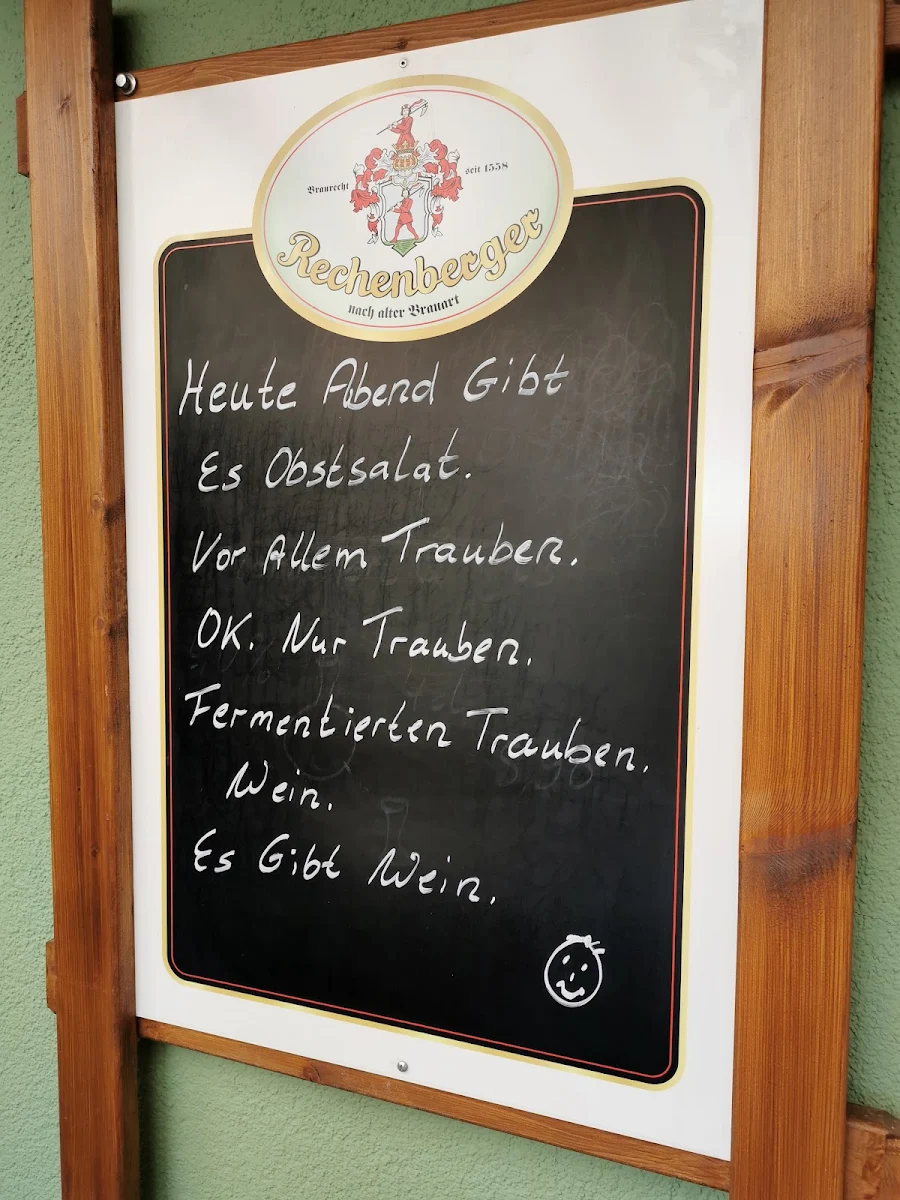 Braurecht seit 1558
Rechenberger
nach alter Brauart
Heute Abend Gibt
Es Obstsalat.
Vor Allem Trauben.
OK. Nur Trauben.
Fermentierten Trauben.
Wein.
Es Gibt Wein.